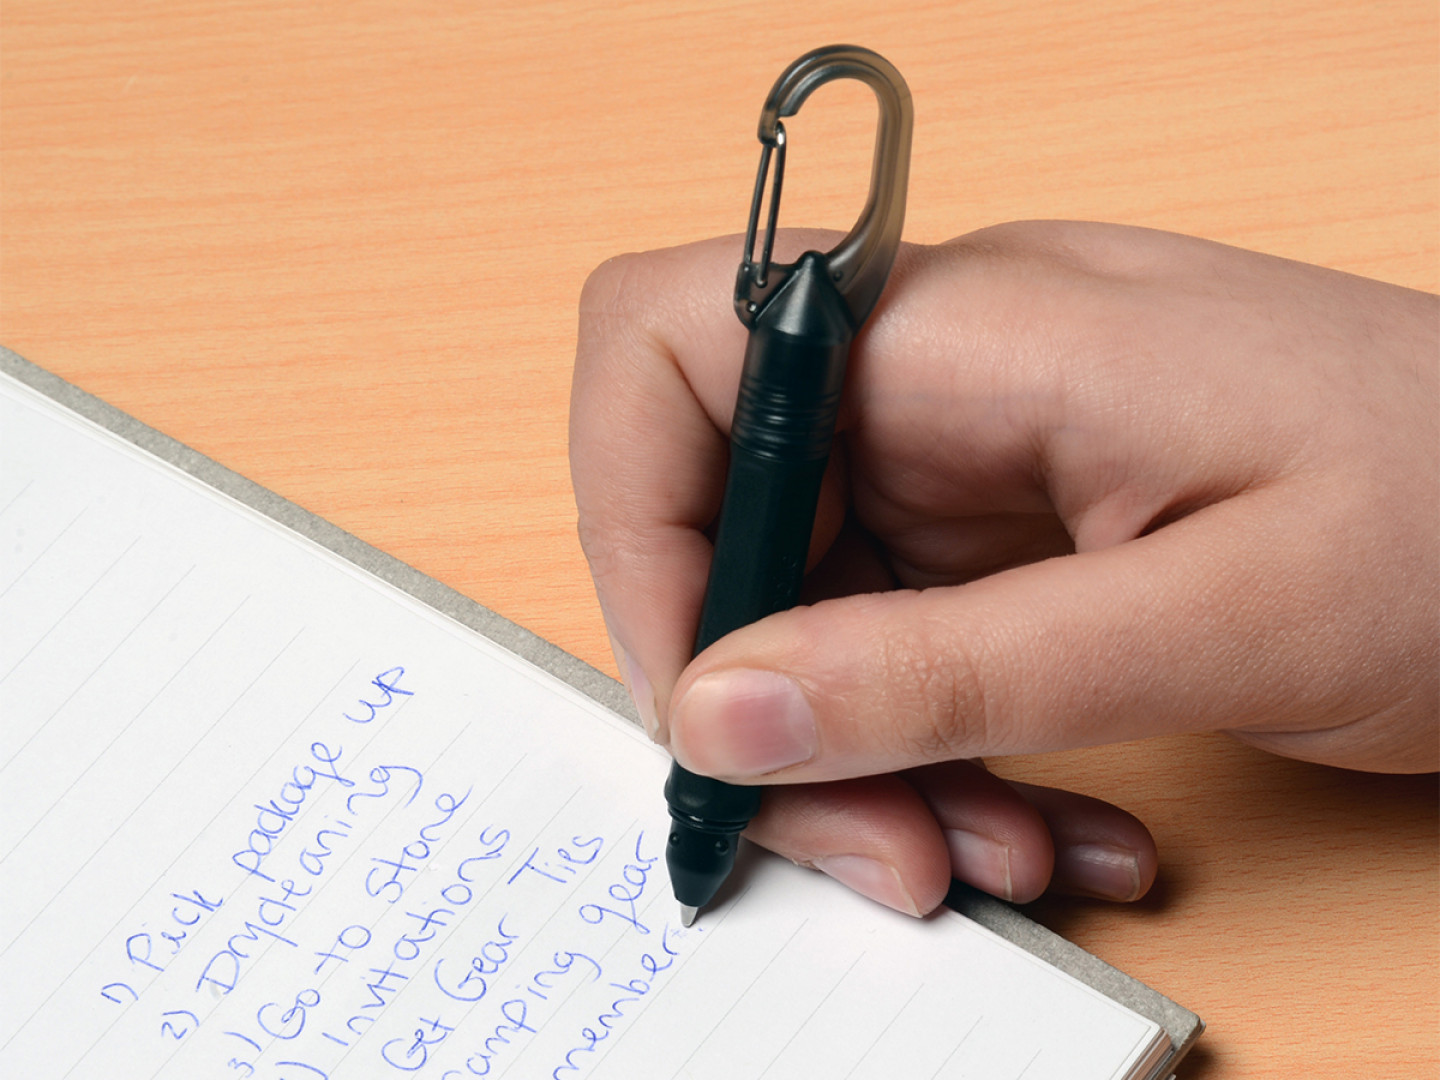 1) Pick package up
2) Drycleaning
3) Go to Store
) Invitations
Get Gear Ties
amping gear
member